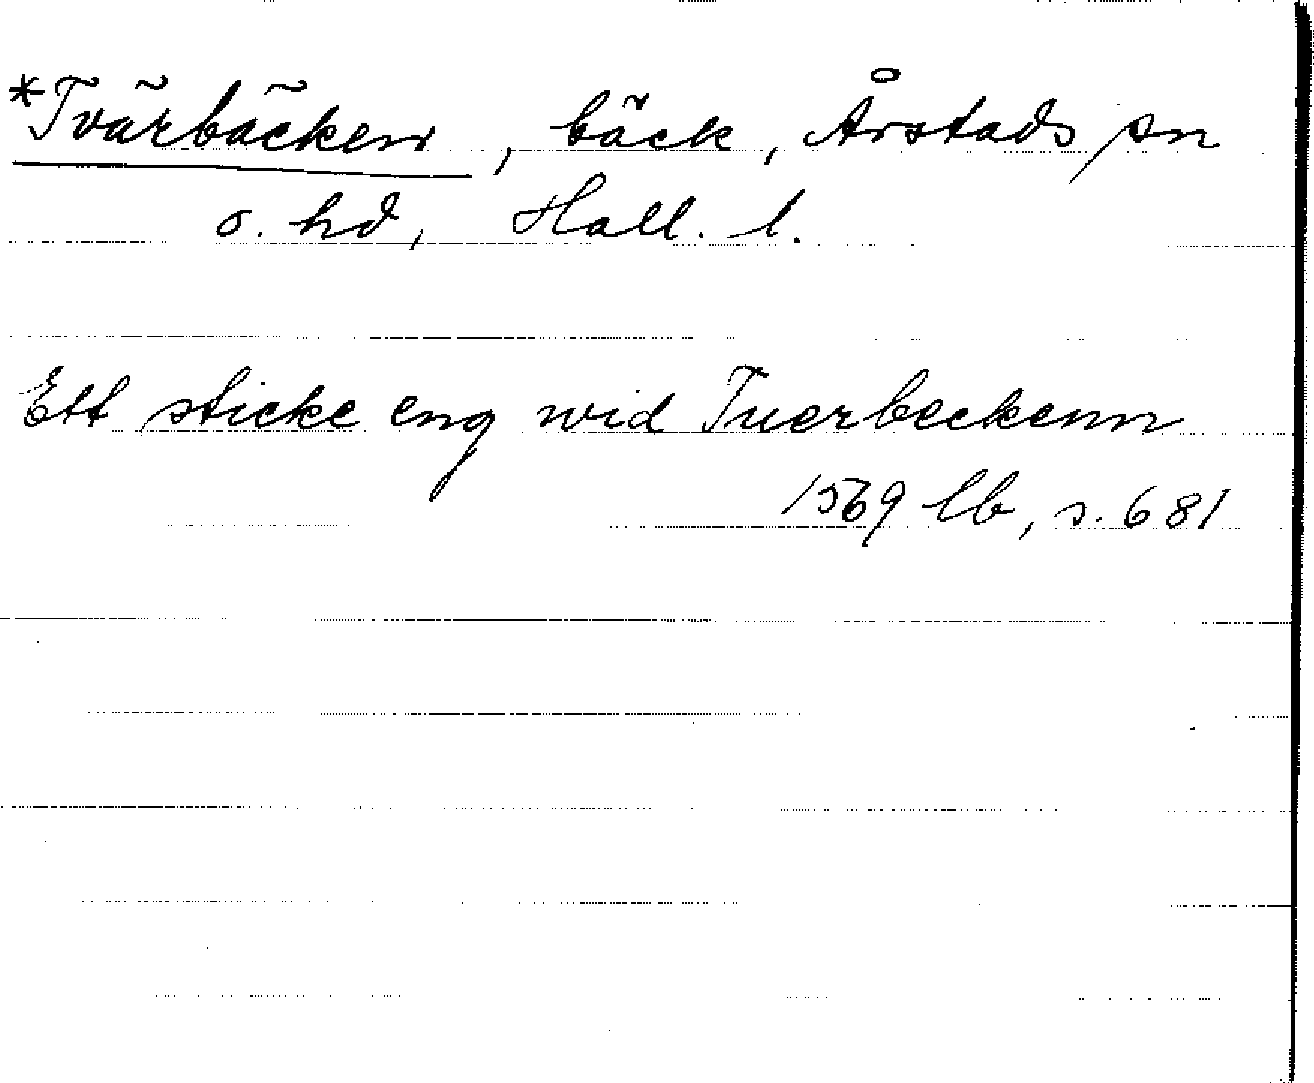 *Tvärbäcken, bäck, Årstads sn
o. hd, Hall. l.
Ett sticke eng wid Tuerbeckenn
1569 lb, s. 681